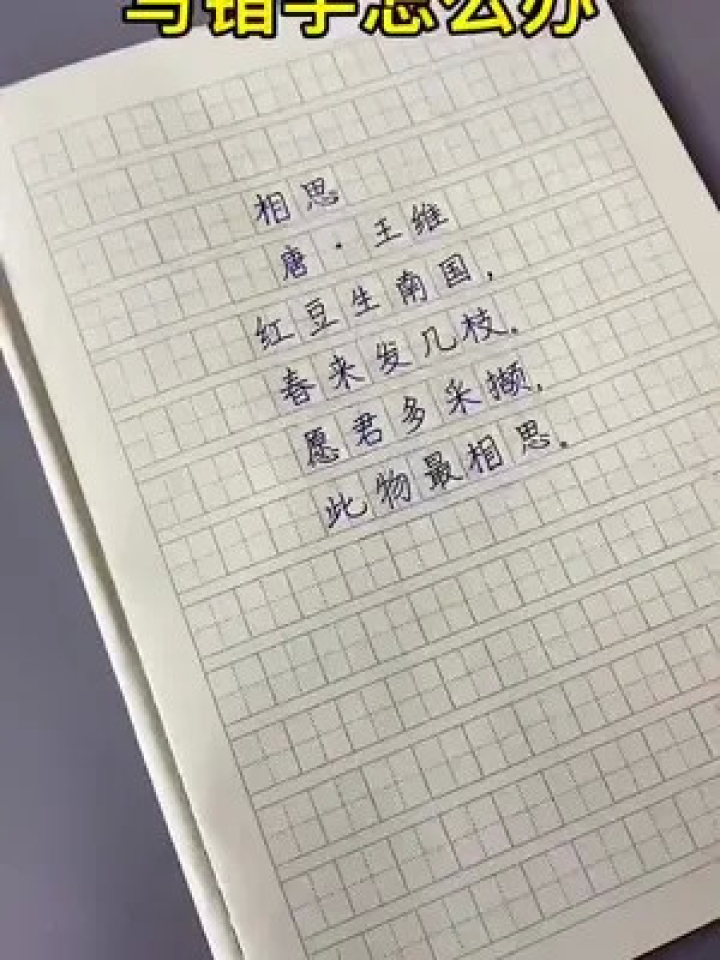 写错字怎么办
相思
唐·王维
红豆生南国，
春来发几枝。
愿君多采撷，
此物最相思。